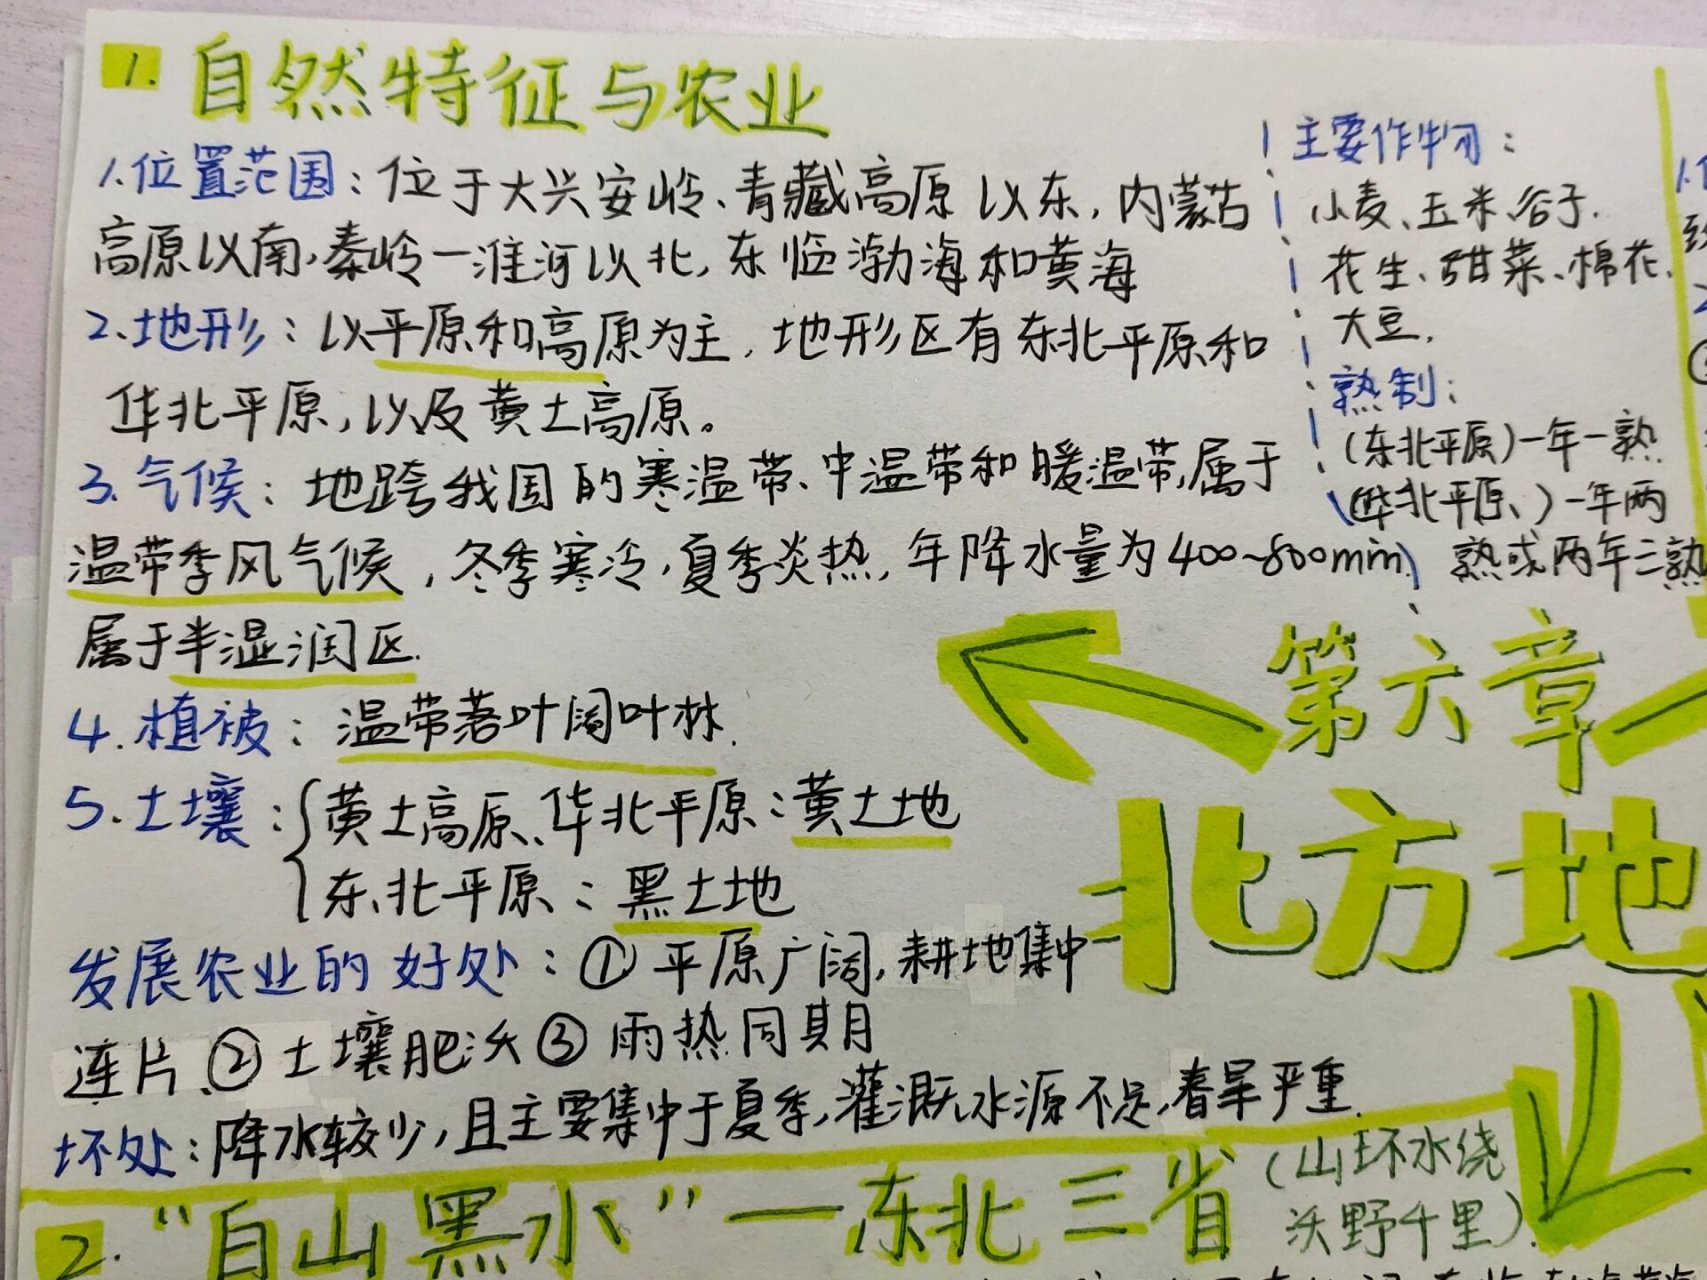 1. 自然特征与农业
1.位置范围：位于大兴安岭、青藏高原以东，内蒙古
高原以南，秦岭一淮河以北，东临渤海和黄海
2.地形：以平原和高原为主，地形区有东北平原和
华北平原，以及黄土高原。
3.气候：地跨我国的寒温带、中温带和暖温带，属于
温带季风气候，冬季寒冷，夏季炎热，年降水量为400~800mm，
属于半湿润区.
4.植被：温带落叶阔叶林.
5.土壤：{黄土高原、华北平原：黄土地
东北平原：黑土地
发展农业的好处：①平原广阔，耕地集中
连片、②土壤肥沃③雨热同期
坏处：降水较少，且主要集中于夏季，灌溉水源不足，春旱严重.
主要作物：
小麦、玉米、谷子.
花生、甜菜、棉花、
大豆.
熟制：
(东北平原)一年一熟
(华北平原、)一年两
熟或两年三熟
第六章
北方地
2. “白山黑水”一东北三省
(山环水绕
沃野千里).